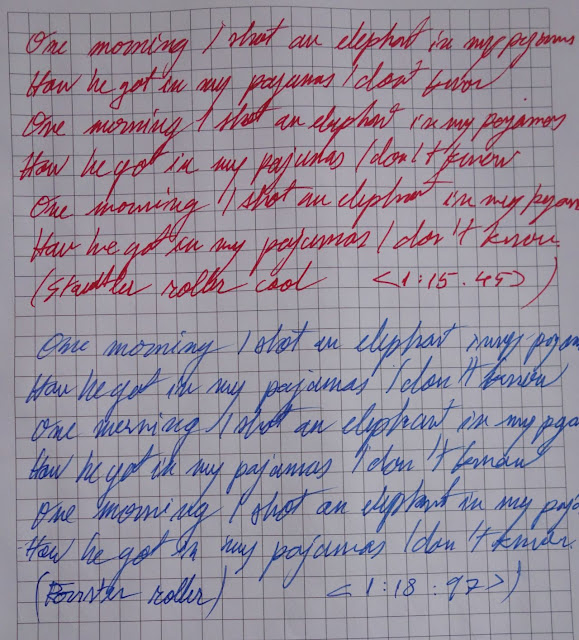 One morning I shot an elephant in my pyjamas
How he got in my pajamas I don't know
One morning I shot an elephant in my pajamas
How he got in my pajamas I don't know
One morning I shot an elephant in my pyjam
How he got in my pajamas I don't know.
(Staedtler roller cool <1:15.45>)
One morning I shot an elephant in my pyjam
How he got in my pajamas I don't know
One morning I shot an elephant in my pyja
How he got in my pajamas I don't know
One morning I shot an elephant in my paja
How he got in my pajamas I don't know.
( roller) <1:18:97>)